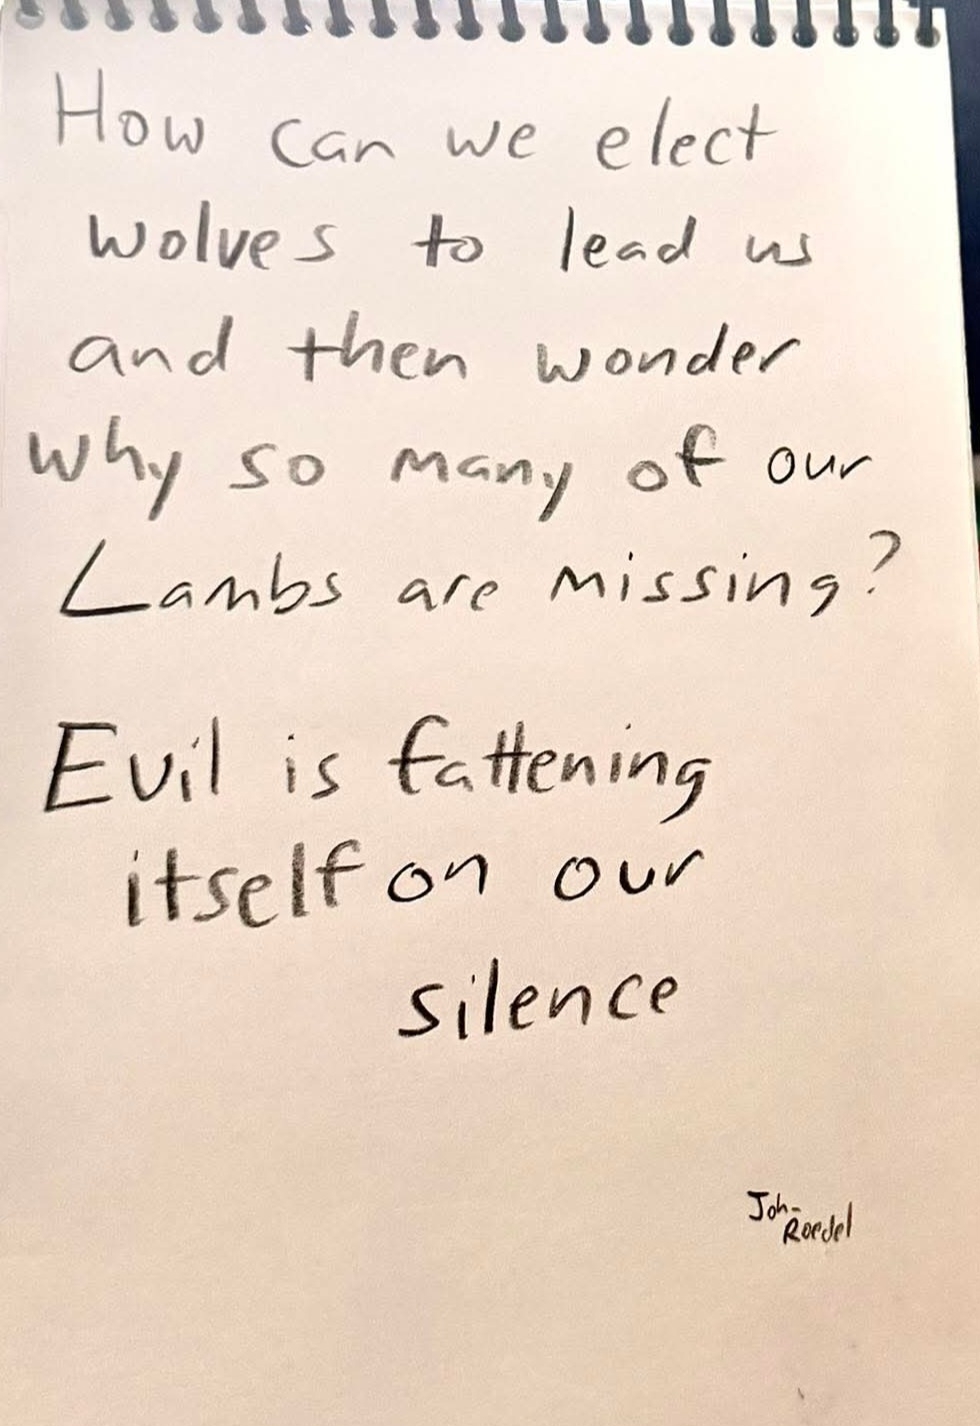 How can we elect
wolves to lead us
and then wonder
why so many of our
Lambs are missing?
Evil is fattening
itself on our
silence
John
Roedel